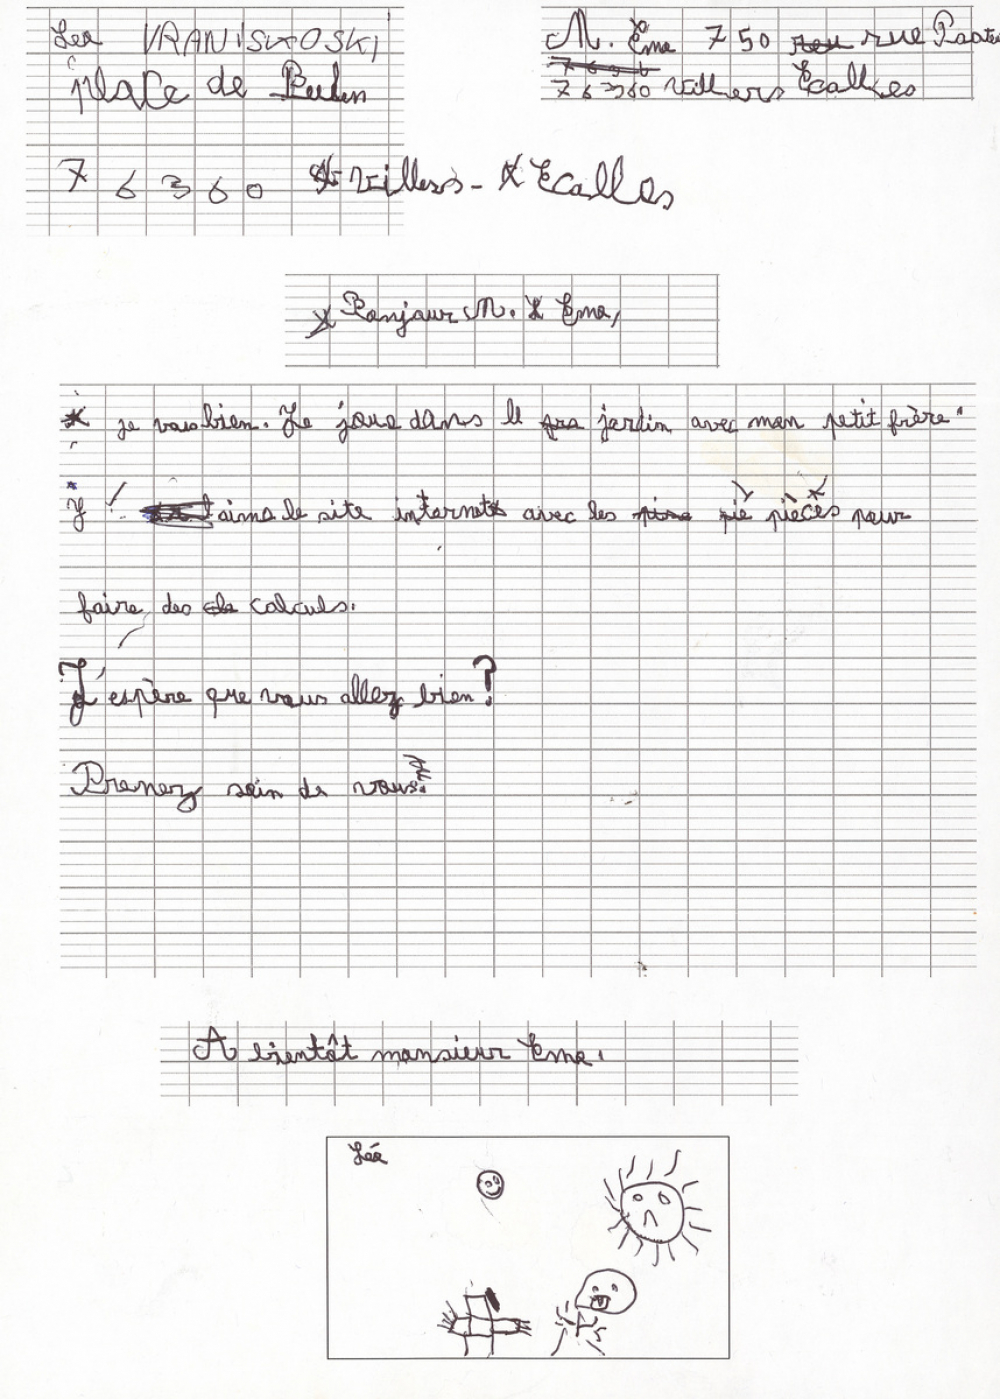 Léa VRANISKOSKI
place de
76360 Villers-Ecalles
M. Eme 750 rue
76360 Villers Ecalles
Bonjour M. Eme,
je vais bien. Je joue dans le jardin avec mon petit frère.
J'aime le site internet avec les pièces pour
faire des calculs.
J'espère que vous allez bien ?
Prenez soin de vous.
A bientôt monsieur Eme.
Léa